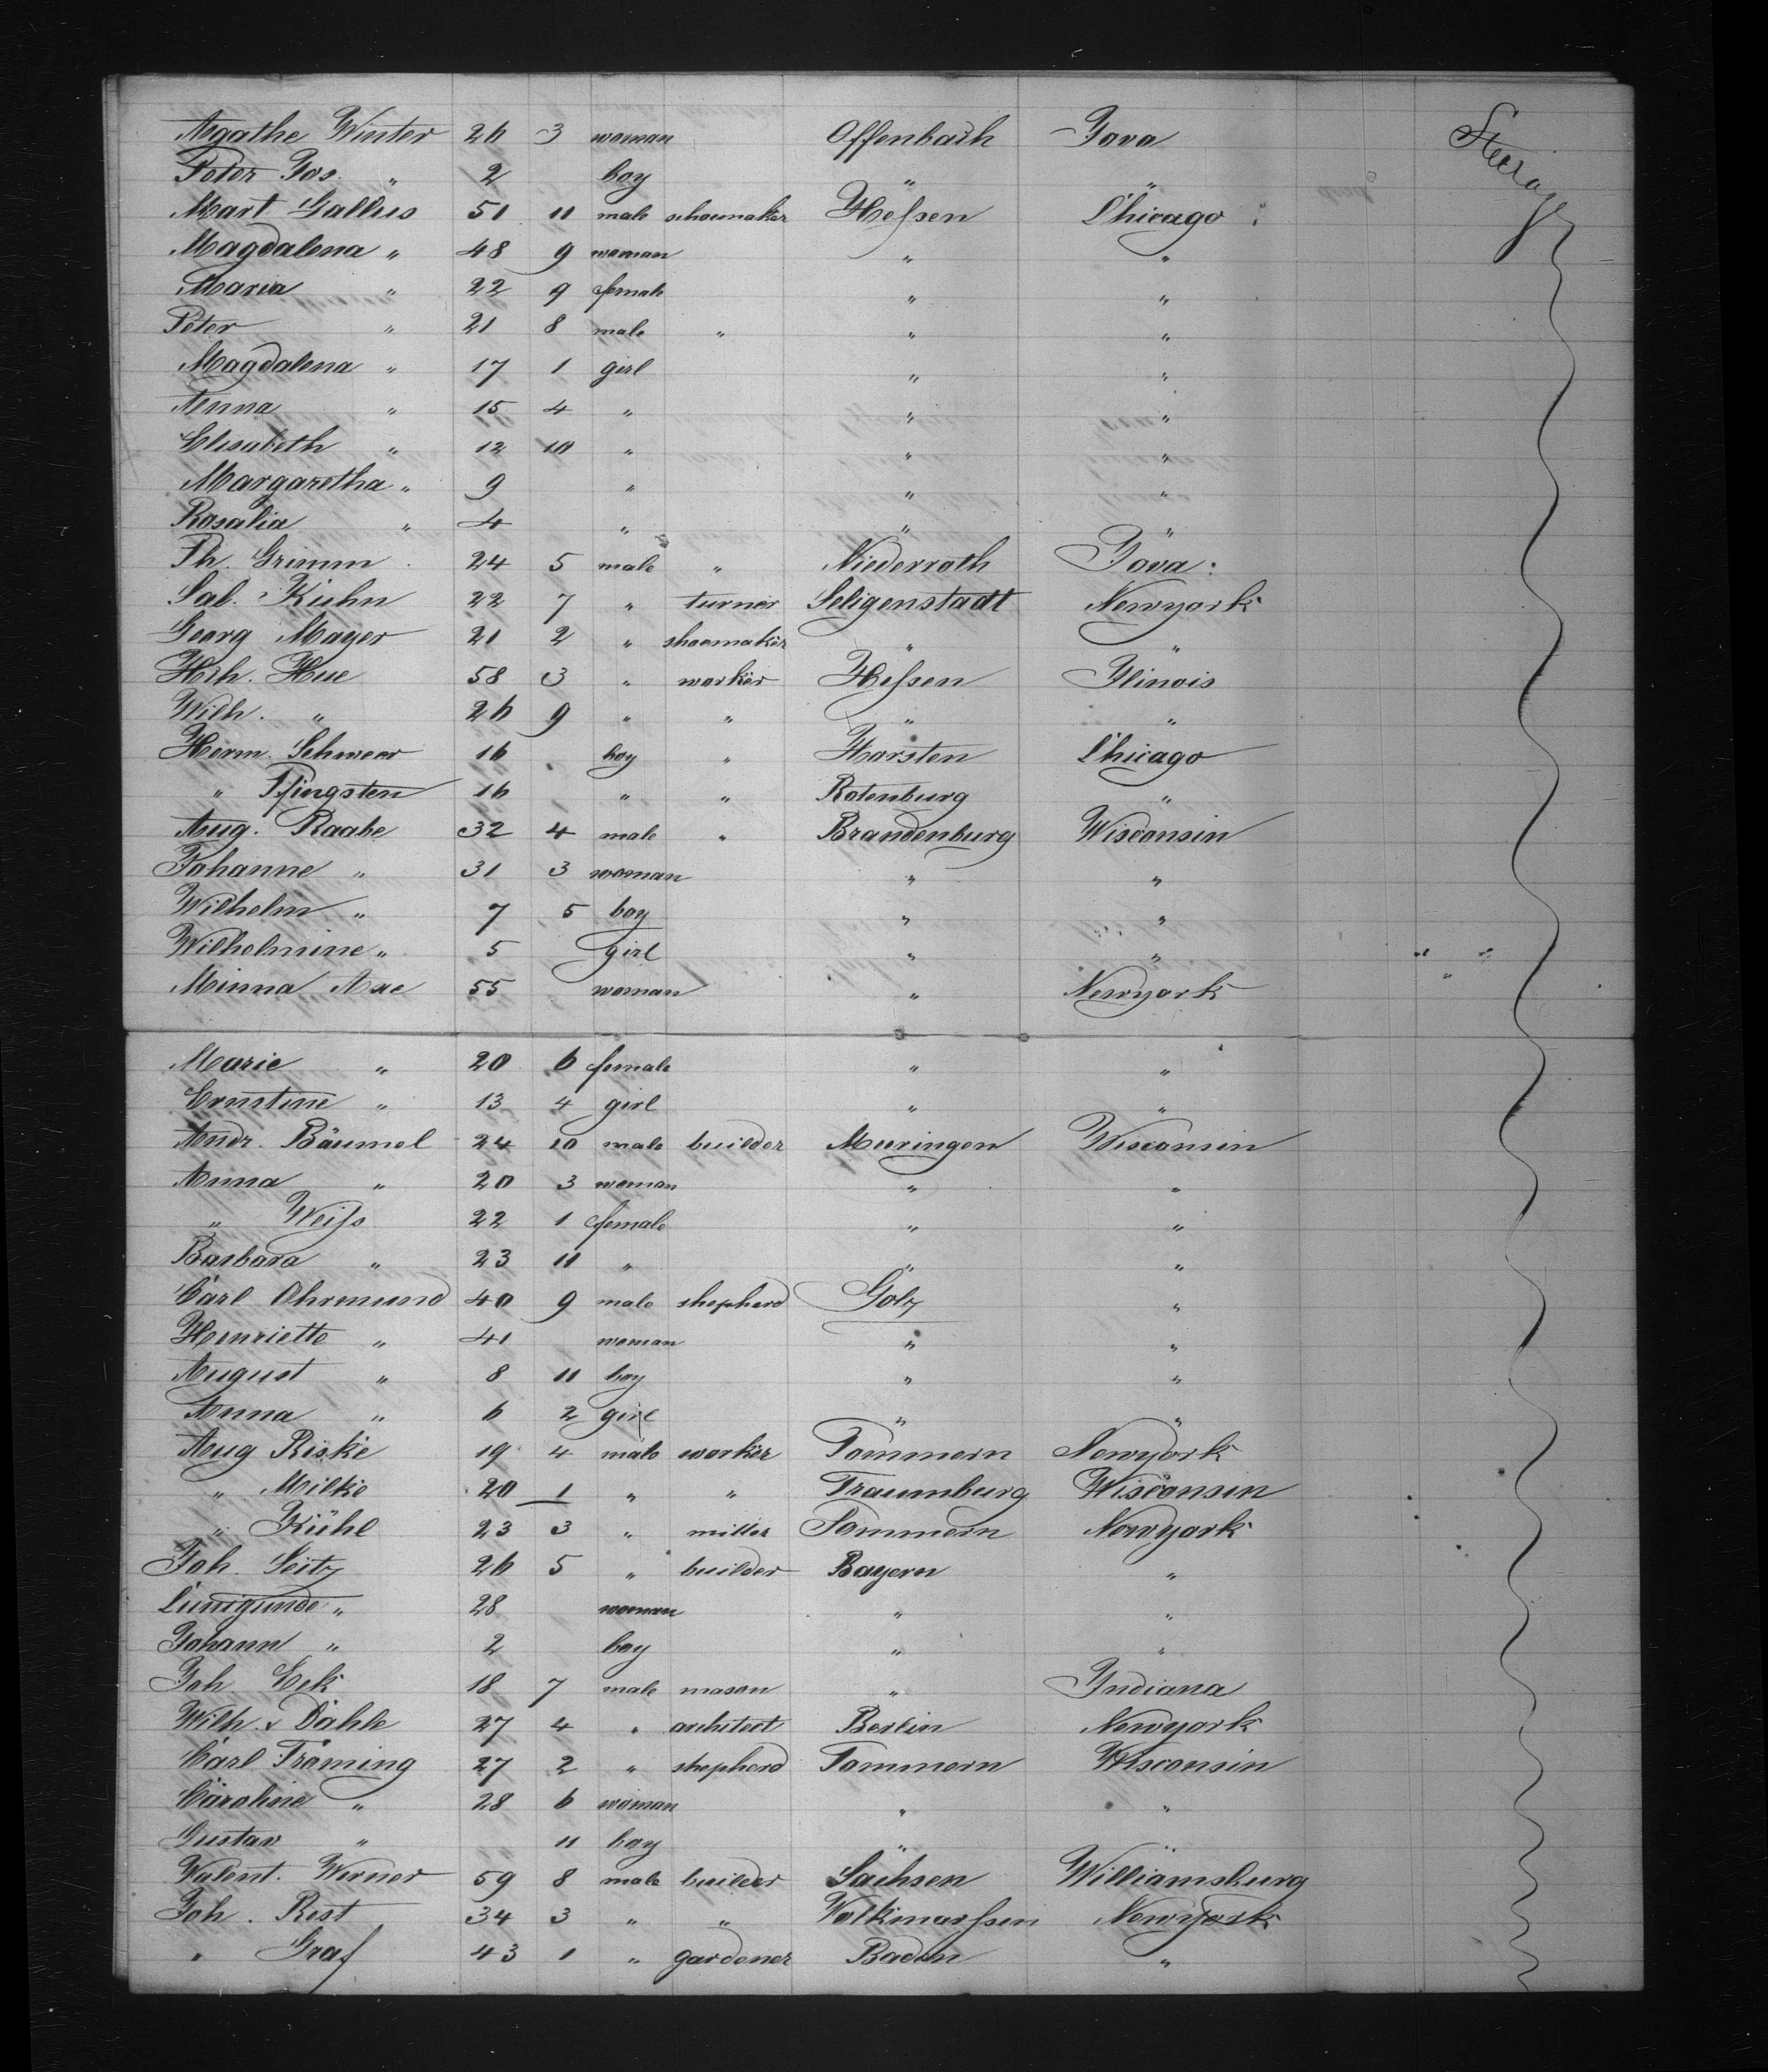 Agathe Winter 26 3 woman Offenbach Jova Steerage
Peter Jos. " 2 boy " "
Mart Gallus 51 11 male shoemaker Heſsen Chicago
Magdalena " 48 9 woman " "
Maria " 22 9 female " "
Peter " 21 8 male " " "
Magdalena " 17 1 girl " "
Anna " 15 4 " " "
Elisabeth " 12 10 " " "
Margaretha " 9 " " "
Rosalia " 4 " " "
Ph. Grimm 24 5 male " Niederroth Jova
Sal. Kuhn 22 7 " turner Seligenstadt Newyork
Georg Mayer 21 2 " shoemaker " "
Hch. Hue 58 3 " worker Heſsen Ilinois
Wilh. " 26 9 " " " "
Herm. Schweer 16 boy " Horsten Chicago
" Pfingsten 16 " " Rotenburg "
Aug. Raabe 32 4 male " Brandenburg Wisconsin
Johanne " 31 3 woman " "
Wilhelm " 7 5 boy " "
Wilhelmine " 5 girl " "
Minna Axe 55 woman " Newyork
Marie " 20 6 female " "
Ernstine " 13 4 girl " "
Andr. Bäumel 24 10 male builder Meeringen Wisconsin
Anna " 20 3 woman " "
" Weiſs 22 1 female " "
Barbara " 23 11 " " "
Carl Ohremund 40 9 male shepherd Golz "
Henriette " 41 woman " "
August " 8 11 boy " "
Anna " 6 2 girl " "
Aug Riske 19 4 male worker Pommern Newyork
" Milke 20 1 " " Traumburg Wisconsin
" Kühl 23 3 " miller Pommern Newyork
Joh. Seitz 26 5 " builder Bayern "
Cunigunde " 28 woman " "
Johann " 2 boy " "
Joh Eck 18 7 male mason " Indiana
Wilh. v Dähle 27 4 " architect Berlin Newyork
Carl Tröming 27 2 " shepherd Pommern Wisconsin
Caroline " 28 6 woman " "
Gustav " 11 boy " "
Valent. Werner 59 8 male builder Sachsen Williamsburg
Joh. Rest 34 3 " " Volkmarſsen Newyork
" Graf 43 1 " gardener Baden "